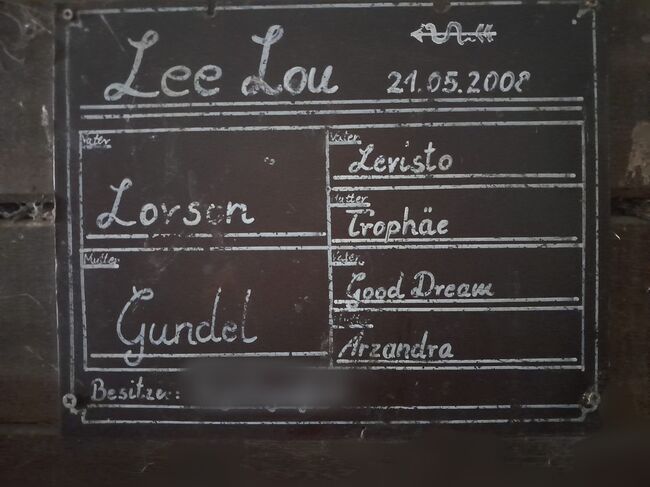 Lee Lou
21.05.2008
Vater
Lorsen
Mutter
Gundel
Vater
Levisto
Mutter
Trophäe
Vater
Good Dream
Mutter
Arzandra
Besitzer: